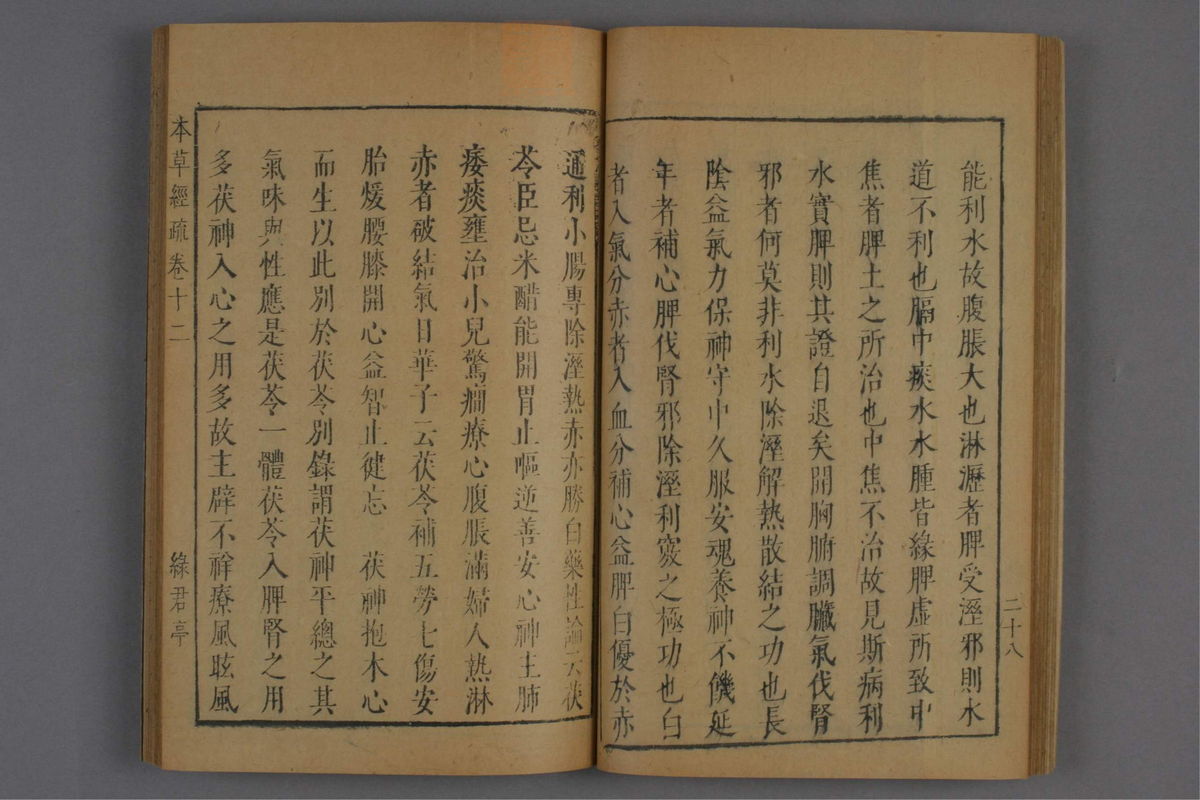 能利水故腹脹大也淋瀝者脾受溼邪則水
道不利也膈中痰水水腫皆緣脾虛所致中
焦者脾土之所治也中焦不治故見斯病利
水實脾則其證自退矣開胸腑調臟氣伐腎
邪者何莫非利水除溼解熱散結之功也長
陰益氣力保神守中久服安魂養神不饑延
年者補心脾伐腎邪除溼利竅之極功也白
者入氣分赤者入血分補心益脾白優於赤
二十八
通利小腸專除溼熱赤亦勝白藥性論云茯
苓臣忌米醋能開胃止嘔逆善安心神主肺
痿痰壅治小兒驚癇療心腹脹滿婦人熱淋
赤者破結氣日華子云茯苓補五勞七傷安
胎煖腰膝開心益智止健忘　茯神抱木心
而生以此別於茯苓別錄謂茯神平總之其
氣味與性應是茯苓一體茯苓入脾腎之用
多茯神入心之用多故主辟不祥療風眩風
本草經疏卷十二
綠君亭